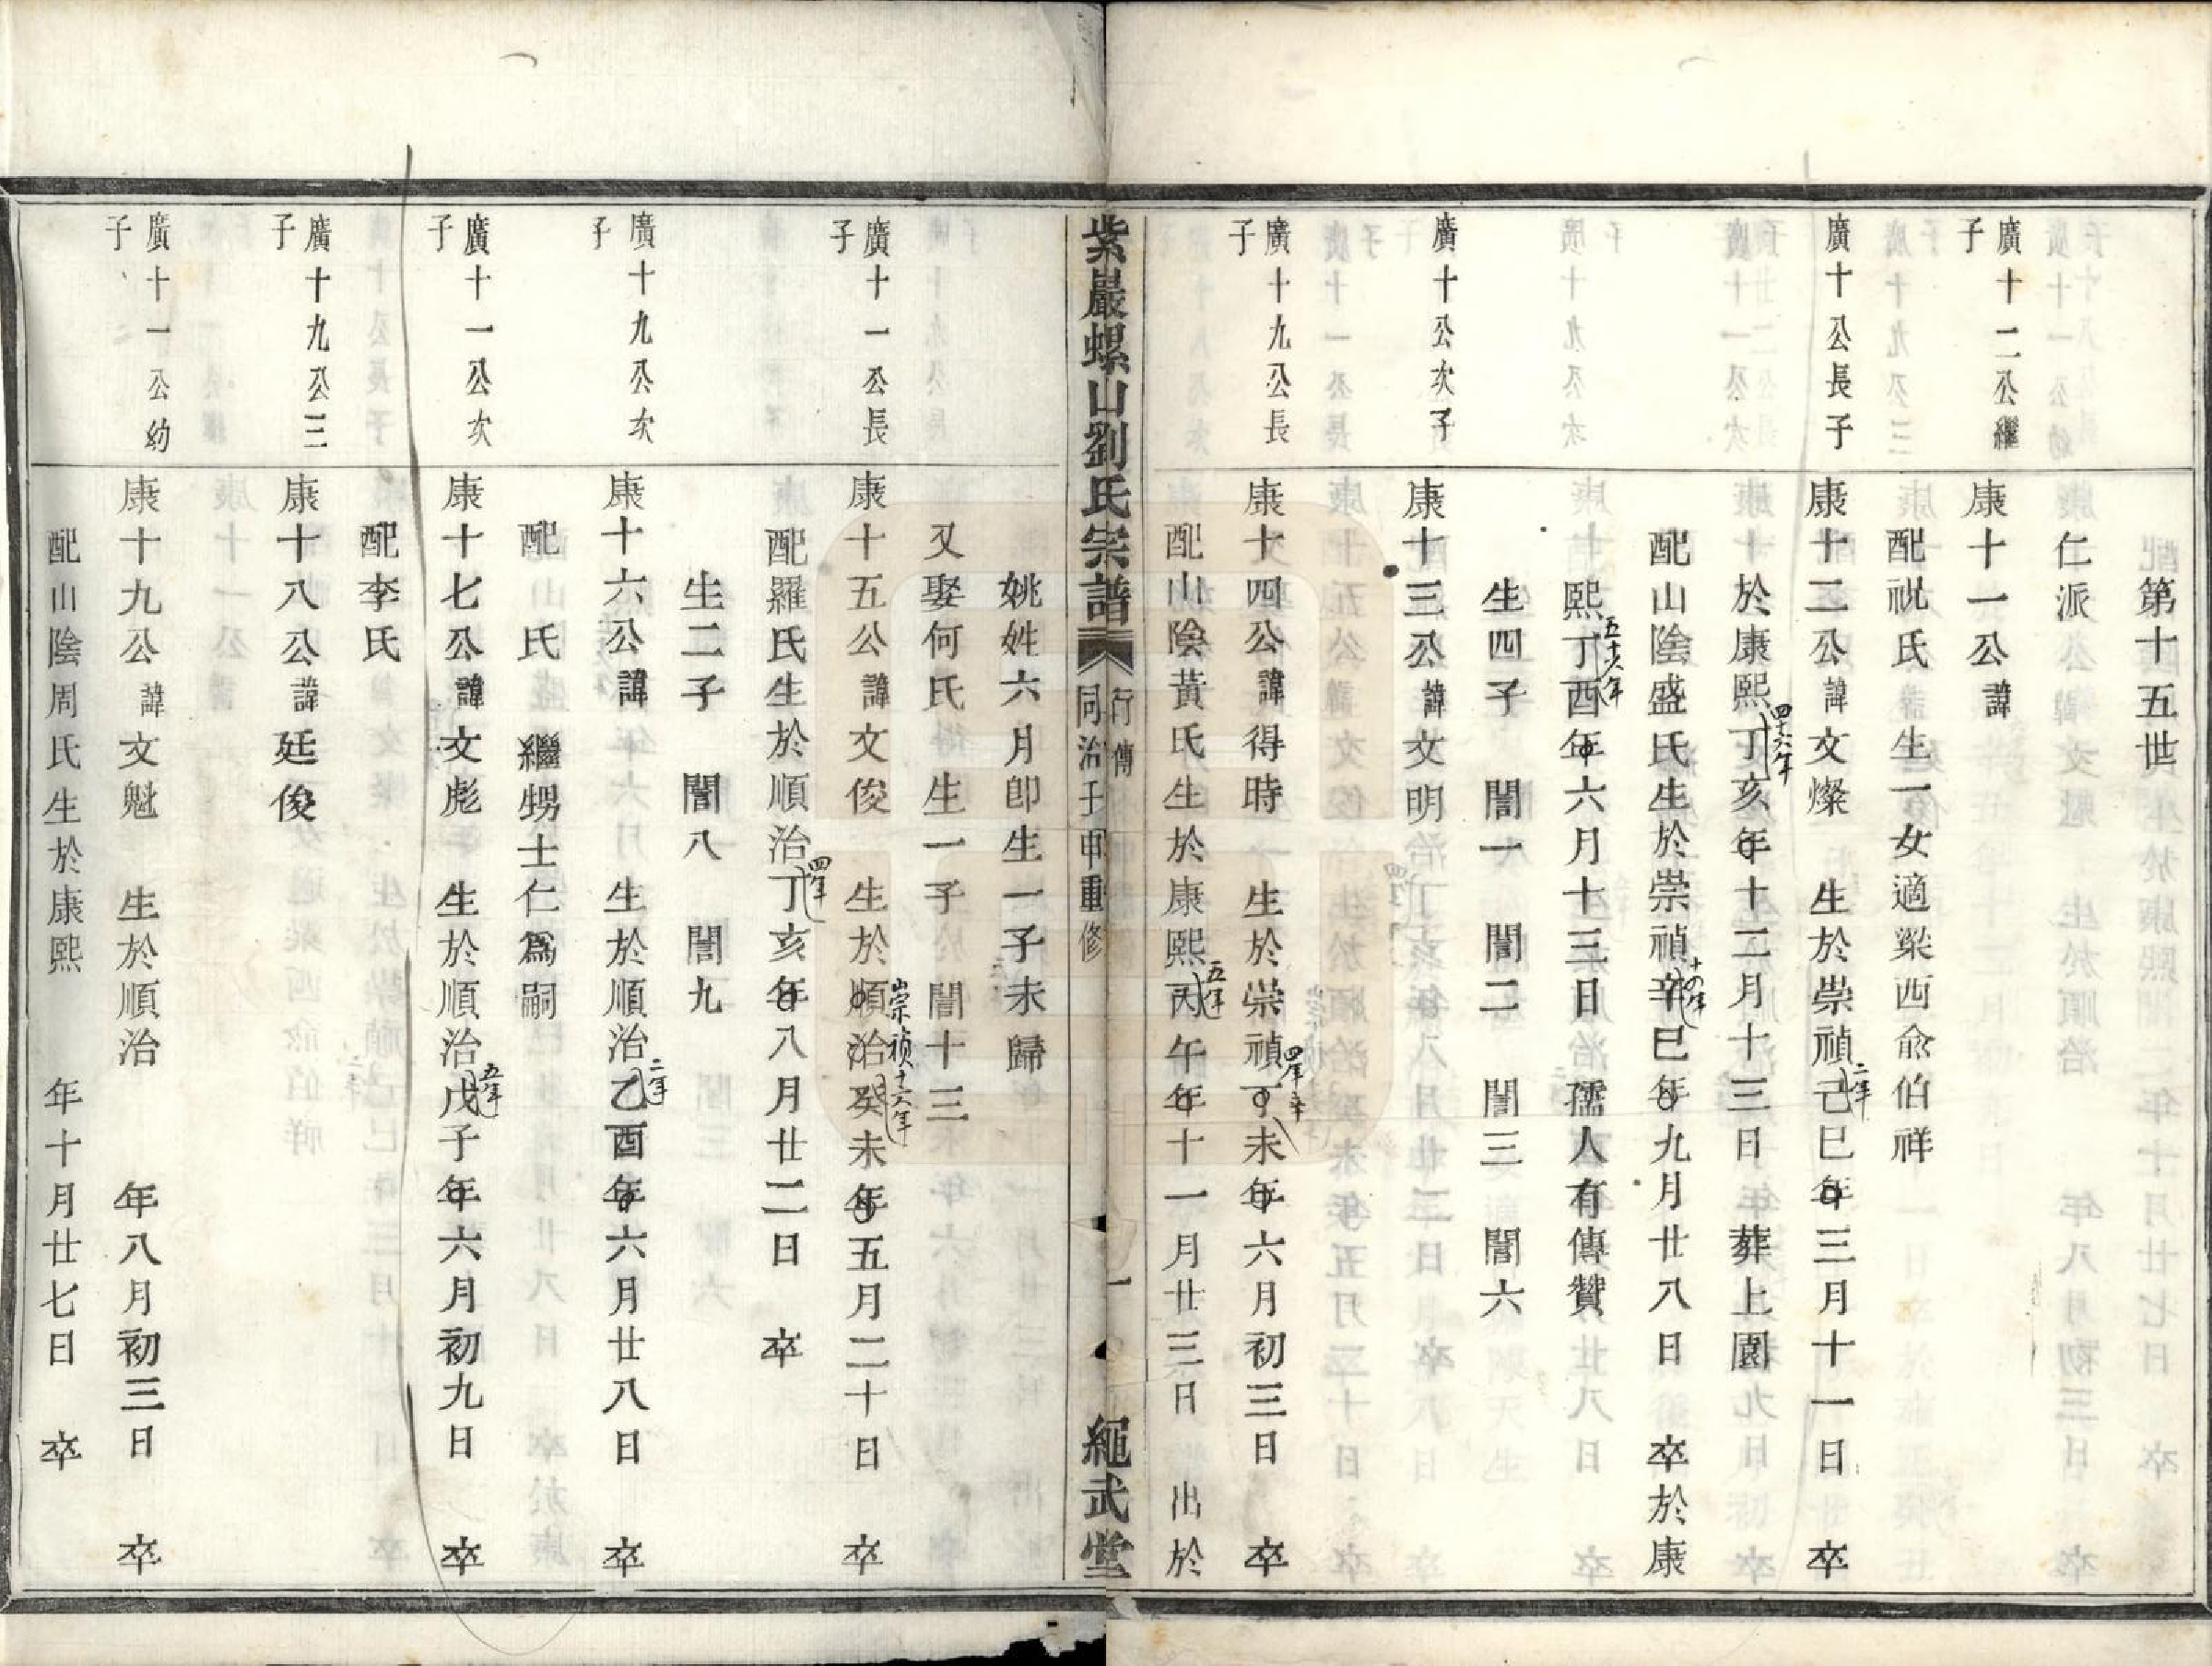 第十五世
仁派
廣十二公繼子
康十一公諱
配祝氏生一女適梁西俞伯祥
廣十公長子
康十二公諱文燦　生於崇禎己巳年三月十一日　卒
二年
於康熙丁亥年十二月十三日　葬上園
四十六年
配山陰盛氏生於崇禎辛巳年九月廿八日　卒於康
十四年
熙丁酉年六月十三日　孺人有傳贊
五十六年
生四子　誾一　誾二　誾三　誾六
廣十公次子
康十三公諱文明
廣十九公長子
康十四公諱得時　生於崇禎丁未年六月初三日　卒
四年辛
配山陰黃氏生於康熙丙午年十一月廿三日　出於
五年
紫巖螺山劉氏宗譜
行傳
同治壬申重修
一
繩武堂
姚姓六月卽生一子未歸
又娶何氏　生一子　誾十三
廣十一公長子
康十五公諱文俊　生於順治癸未年五月二十日　卒
崇禎十六年
配羅氏生於順治丁亥年八月廿二日　卒
四年
生二子　誾八　誾九
廣十九公次子
康十六公諱　生於順治乙酉年六月廿八日　卒
二年
配　氏　繼甥士仁為嗣
廣十一公次子
康十七公諱文彪　生於順治戊子年六月初九日　卒
五年
配李氏
廣十九公三子
康十八公諱廷俊
廣十一公幼子
康十九公諱文魁　生於順治　年八月初三日　卒
配山陰周氏生於康熙　年十月廿七日　卒